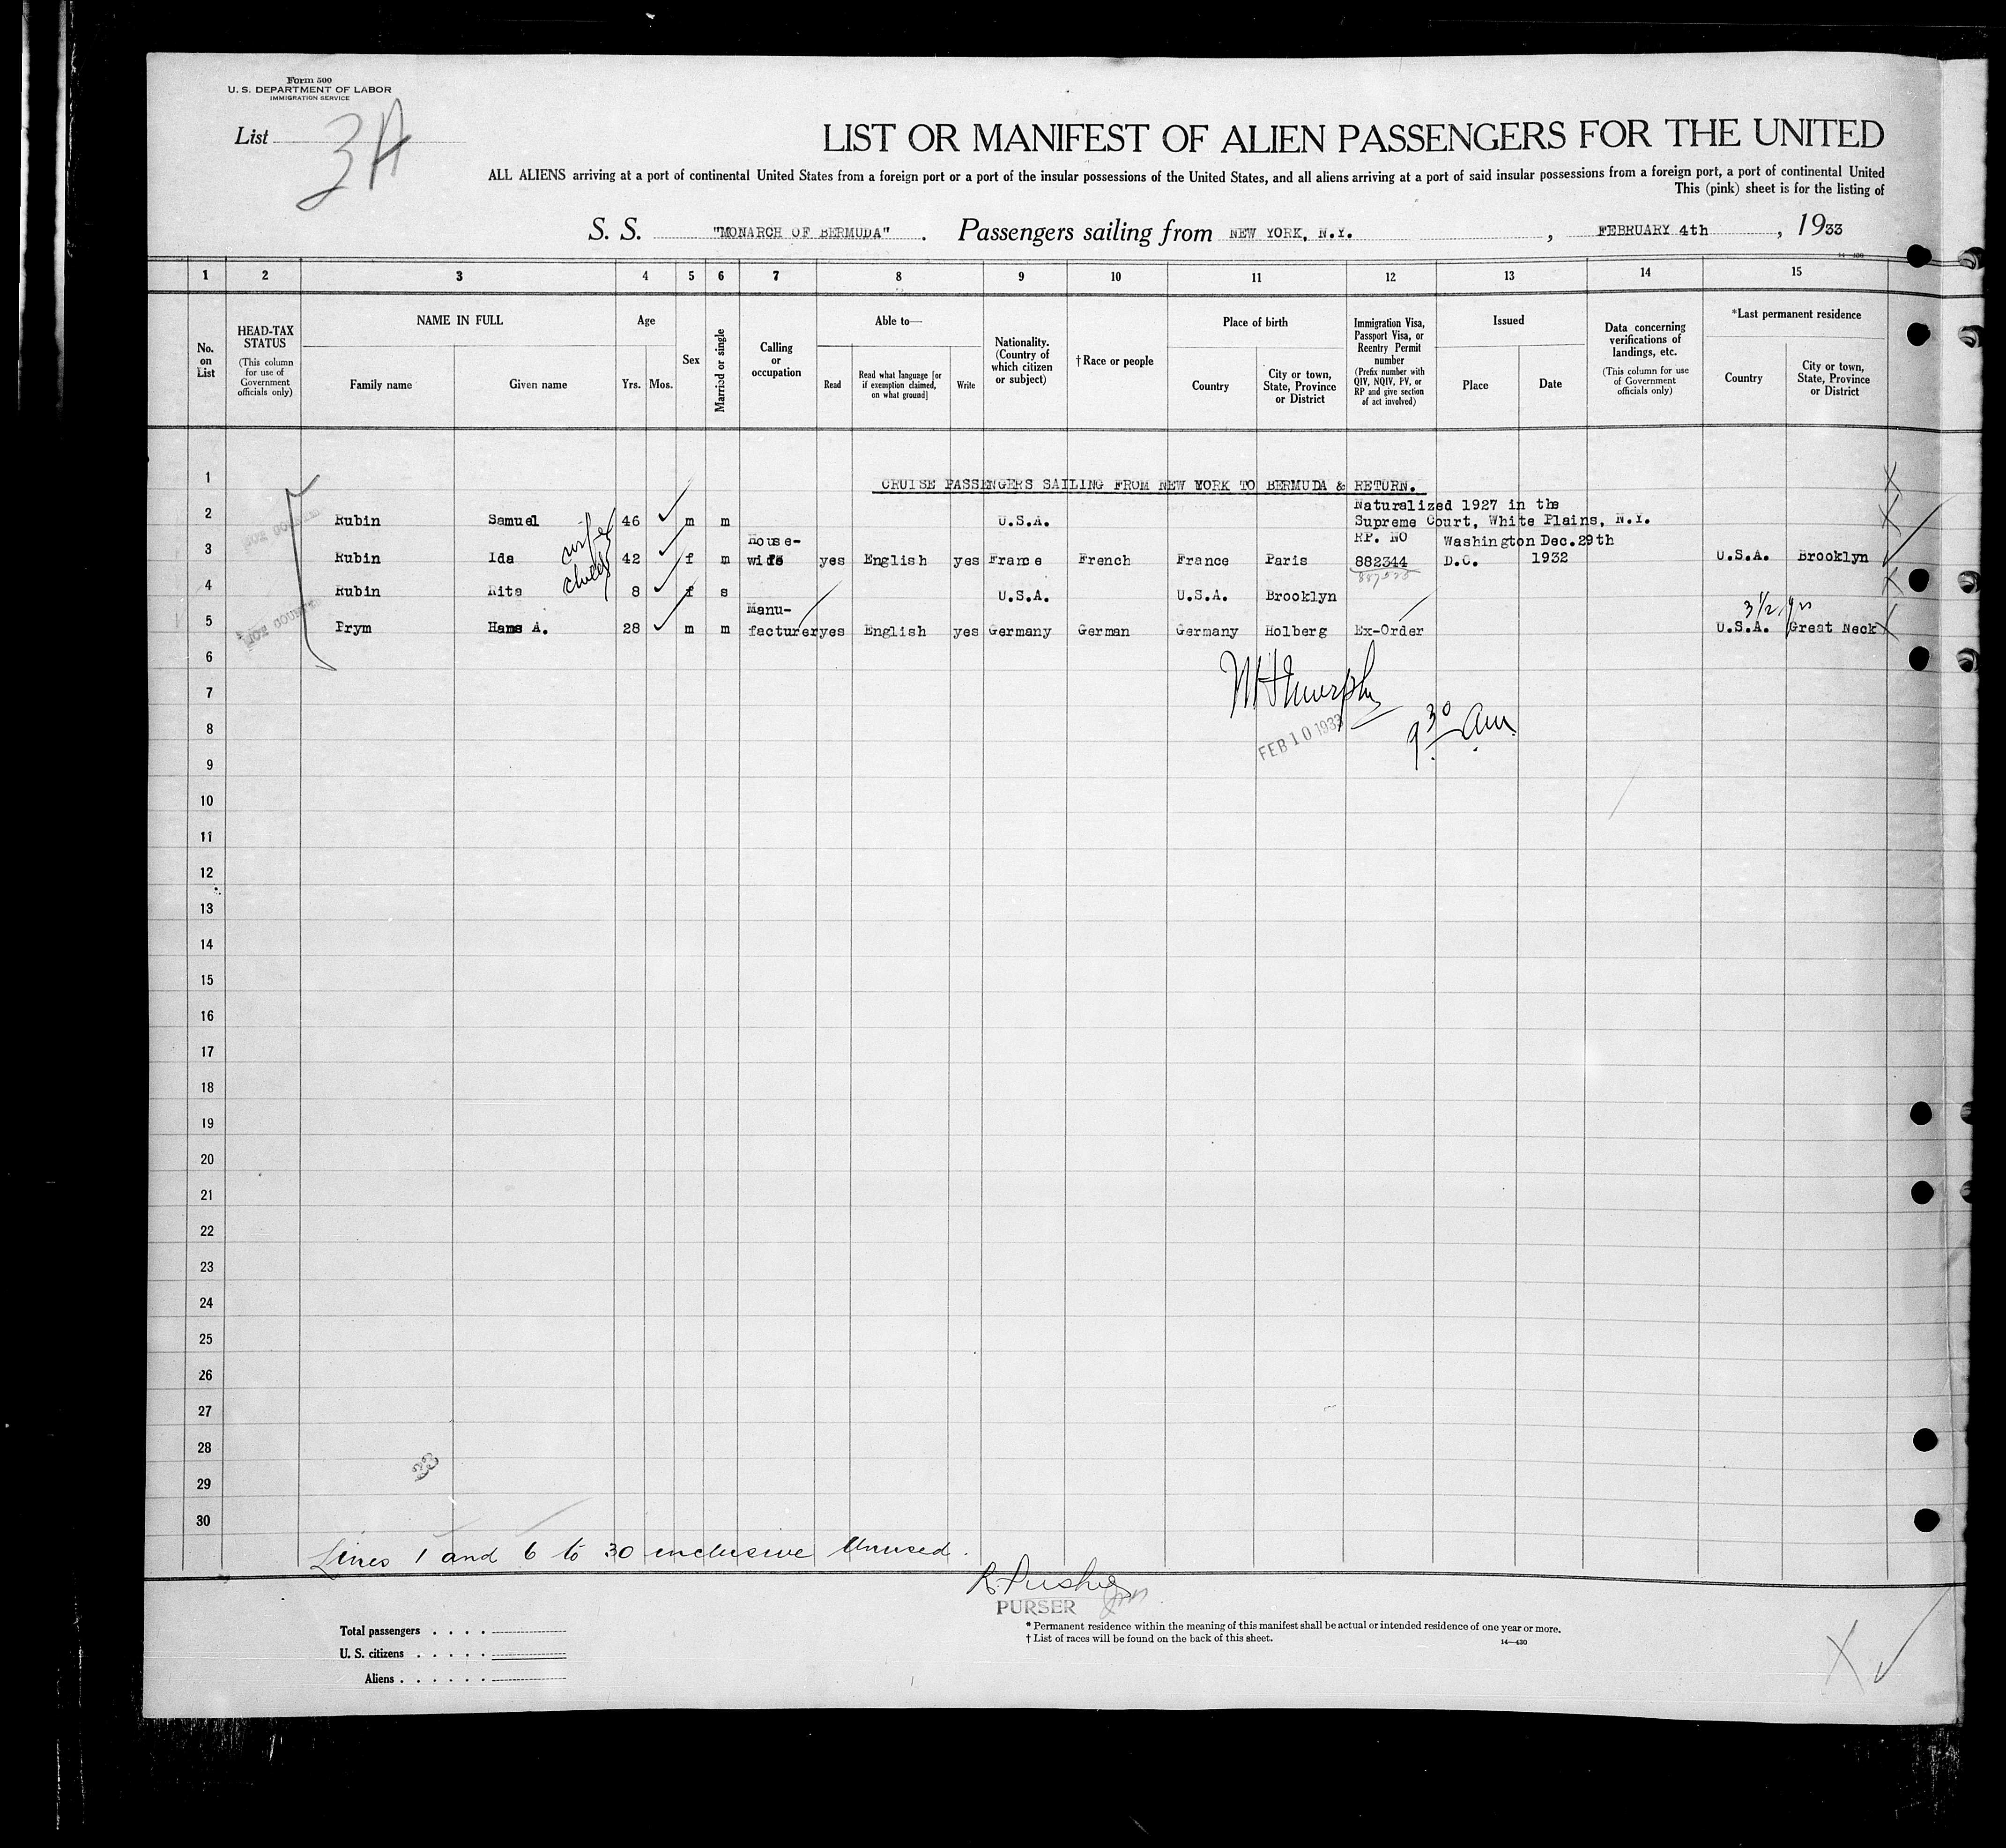 Form 500
U. S. DEPARTMENT OF LABOR
IMMIGRATION SERVICE
List 3A
LIST OR MANIFEST OF ALIEN PASSENGERS FOR THE UNITED
ALL ALIENS arriving at a port of continental United States from a foreign port or a port of the insular possessions of the United States, and all aliens arriving at a port of said insular possessions from a foreign port, a port of continental United
This (pink) sheet is for the listing of
S. S. "MONARCH OF BERMUDA" . Passengers sailing from NEW YORK, N.Y. , FEBRUARY 4th , 1933
14—430
1 2 3 4 5 6 7 8 9 10 11 12 13 14 15
No. on List
HEAD-TAX STATUS
(This column for use of Government officials only)
NAME IN FULL
Family name
Given name
Age
Yrs. Mos.
Sex
Married or single
Calling or occupation
Able to—
Read
Read what language [or if exemption claimed, on what ground]
Write
Nationality. (Country of which citizen or subject)
† Race or people
Place of birth
Country
City or town, State, Province or District
Immigration Visa, Passport Visa, or Reentry Permit number
(Prefix number with QIV, NQIV, PV, or RP and give section of act involved)
Issued
Place
Date
Data concerning verifications of landings, etc.
(This column for use of Government officials only)
*Last permanent residence
Country
City or town, State, Province or District
1 CRUISE PASSENGERS SAILING FROM NEW YORK TO BERMUDA & RETURN.
Naturalized 1927 in the
2 Rubin Samuel 46 m m U.S.A. Supreme Court, White Plains, N.Y.
wife House- RP. NO Washington Dec.29th
3 Rubin Ida 42 f m wife yes English yes France French France Paris 882344 D.C. 1932 U.S.A. Brooklyn
child
4 Rubin Rita 8 f s U.S.A. U.S.A. Brooklyn
Manu- 3 1/2 yrs
5 Prym Hans A. 28 m m facturer yes English yes Germany German Germany Holberg Ex-Order U.S.A. Great Neck
6
7
8
FEB 10 1933
9 30 am
9
10
11
12
13
14
15
16
17
18
19
20
21
22
23
24
25
26
27
28
33
29
30
Lines 1 and 6 to 30 inclusive Unused.
PURSER
Total passengers
U. S. citizens
Aliens
* Permanent residence within the meaning of this manifest shall be actual or intended residence of one year or more.
† List of races will be found on the back of this sheet.
14—430